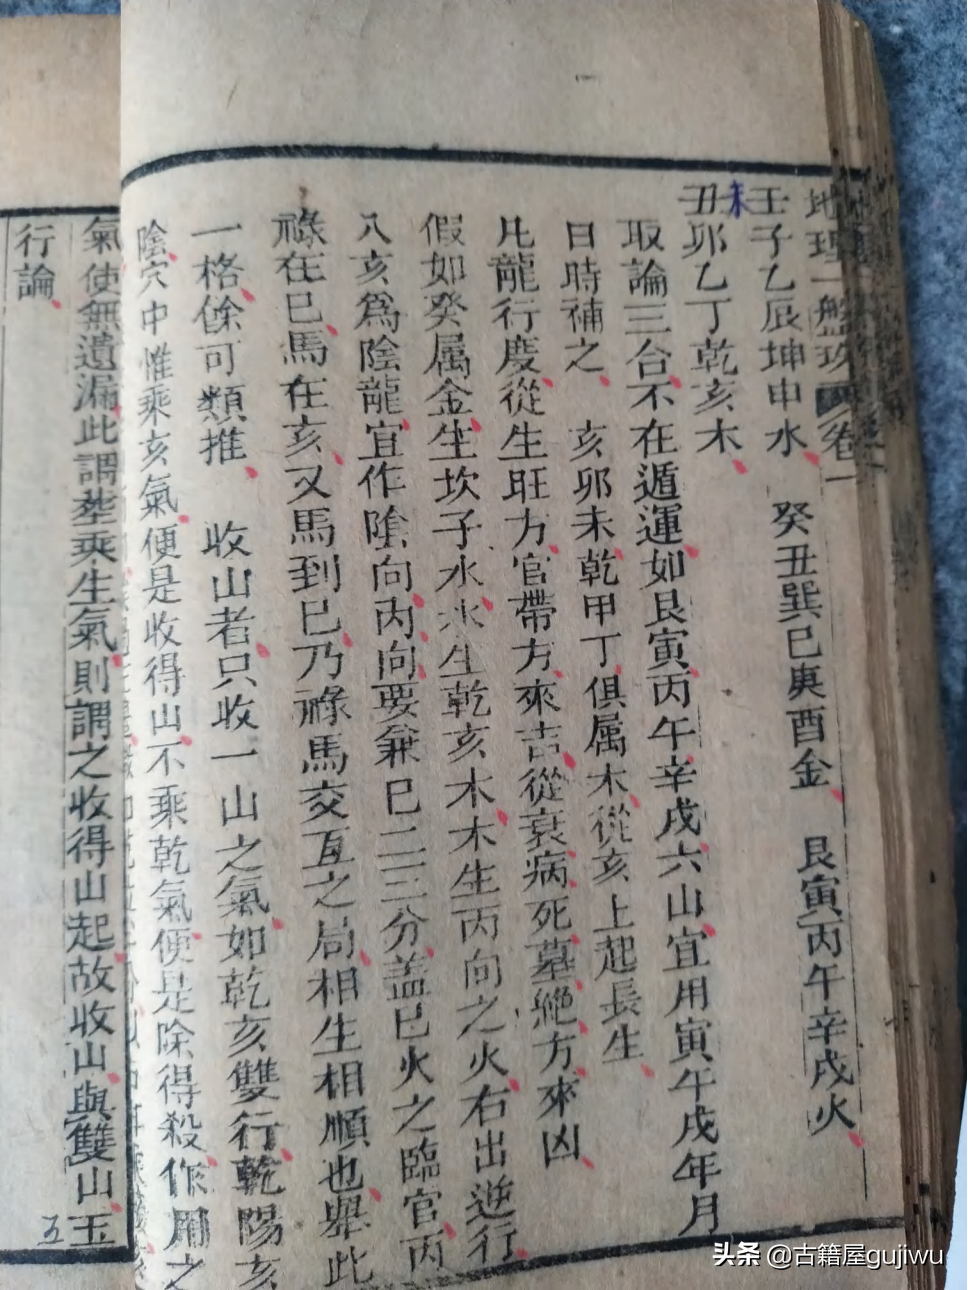 地理一盤玫 卷一
壬子乙辰坤申水 癸丑巽巳庚酉金 艮寅丙午辛戌火
未
丑卯乙丁乾亥木
取論三合不在遁運如艮寅丙午辛戌六山宜用寅午戌年月
日時補之 亥卯未乾甲丁俱属木從亥上起長生
凡龍行度從生旺方官帶方來吉從衰病死墓絶方來凶
假如癸属金坐坎子水水生乾亥木木生丙向之火右出逆行
入亥爲陰龍宜作陰向丙向要兼巳二三分盖巳火之臨官丙
祿在巳馬在亥又馬到巳乃祿馬交互之局相生相順也舉此
一格餘可類推 收山者只收一山之氣如乾亥雙行乾陽亥
陰穴中惟乘亥氣便是收得山不乘乾氣便是除得殺作用之
氣使無遺漏此謂塟乘生氣則謂之收得山起故收山與雙山玉
行論
五
头条 @古籍屋gujiwu